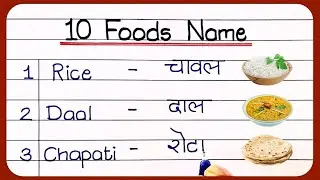 10 Foods Name
1 Rice - चावल
2 Daal - दाल
3 Chapati - रोटा